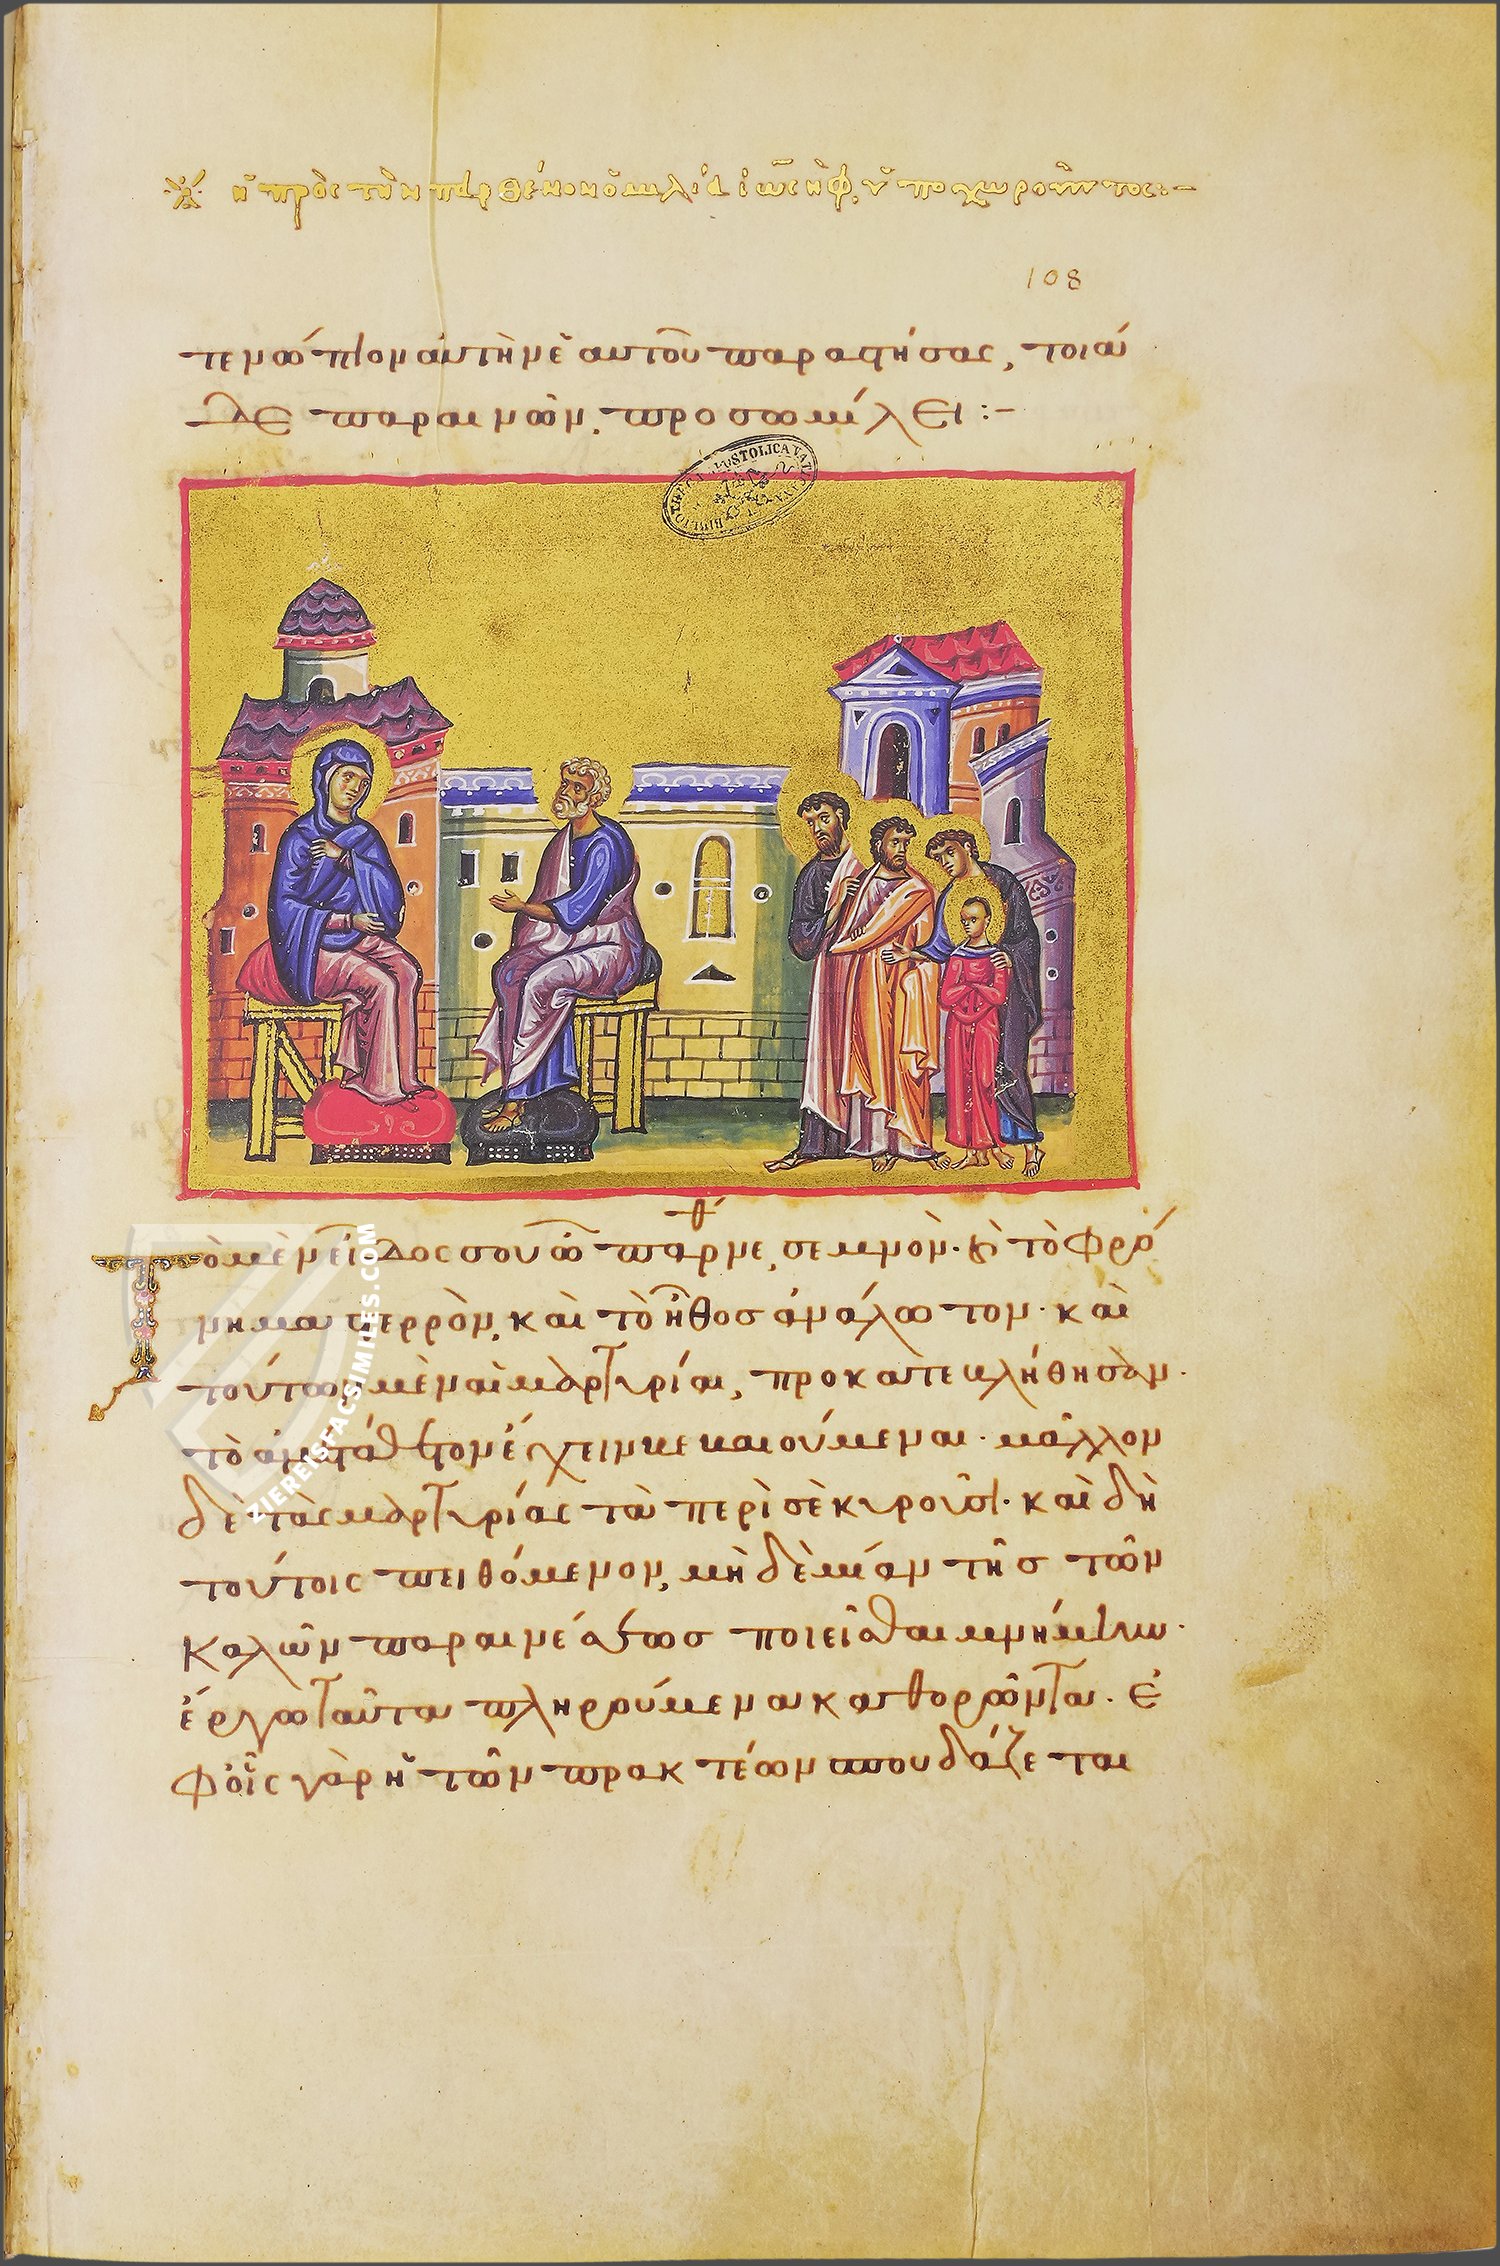 ἡ πρὸς τὴν παρθένον ὁμιλία ἰωσὴφ, ὑποχωροῦντος:–
108
τενώπιον αὐτὴν ἑαυτοῦ παραστήσας, τοιά
δε παραινῶν, προσωμίλει:–
BIBLIOTHECA APOSTOLICA VATICANA
Τὸ μὲν εἶδός σου ὦ παρθένε, σεμνὸν· καὶ τὸ φρό
νημα στερρὸν, καὶ τὸ ἦθος ἀνάλωτον· καὶ
τούτων μὲν αἱ μαρτυρίαι, προκατεκλήθησαν·
τὸ ἔχειν καὶ οὐ μᾶλλον
δὲ τὰς μαρτυρίας τὰ περὶ σὲ κυροῦσι· καὶ δὴ
τούτοις πειθόμενον, μηδεμίαν τῆς τῶν
καλῶν παραινέσεως ποιεῖσθαι μνήμην·
ἔργῳ ταῦτα πληρούμενα κατθορρῶνται. ἐ
φ᾽ οἷς γὰρ ἡ τῶν πρακτέων σπουδάζεται
ZIEREISFACSIMILES.COM